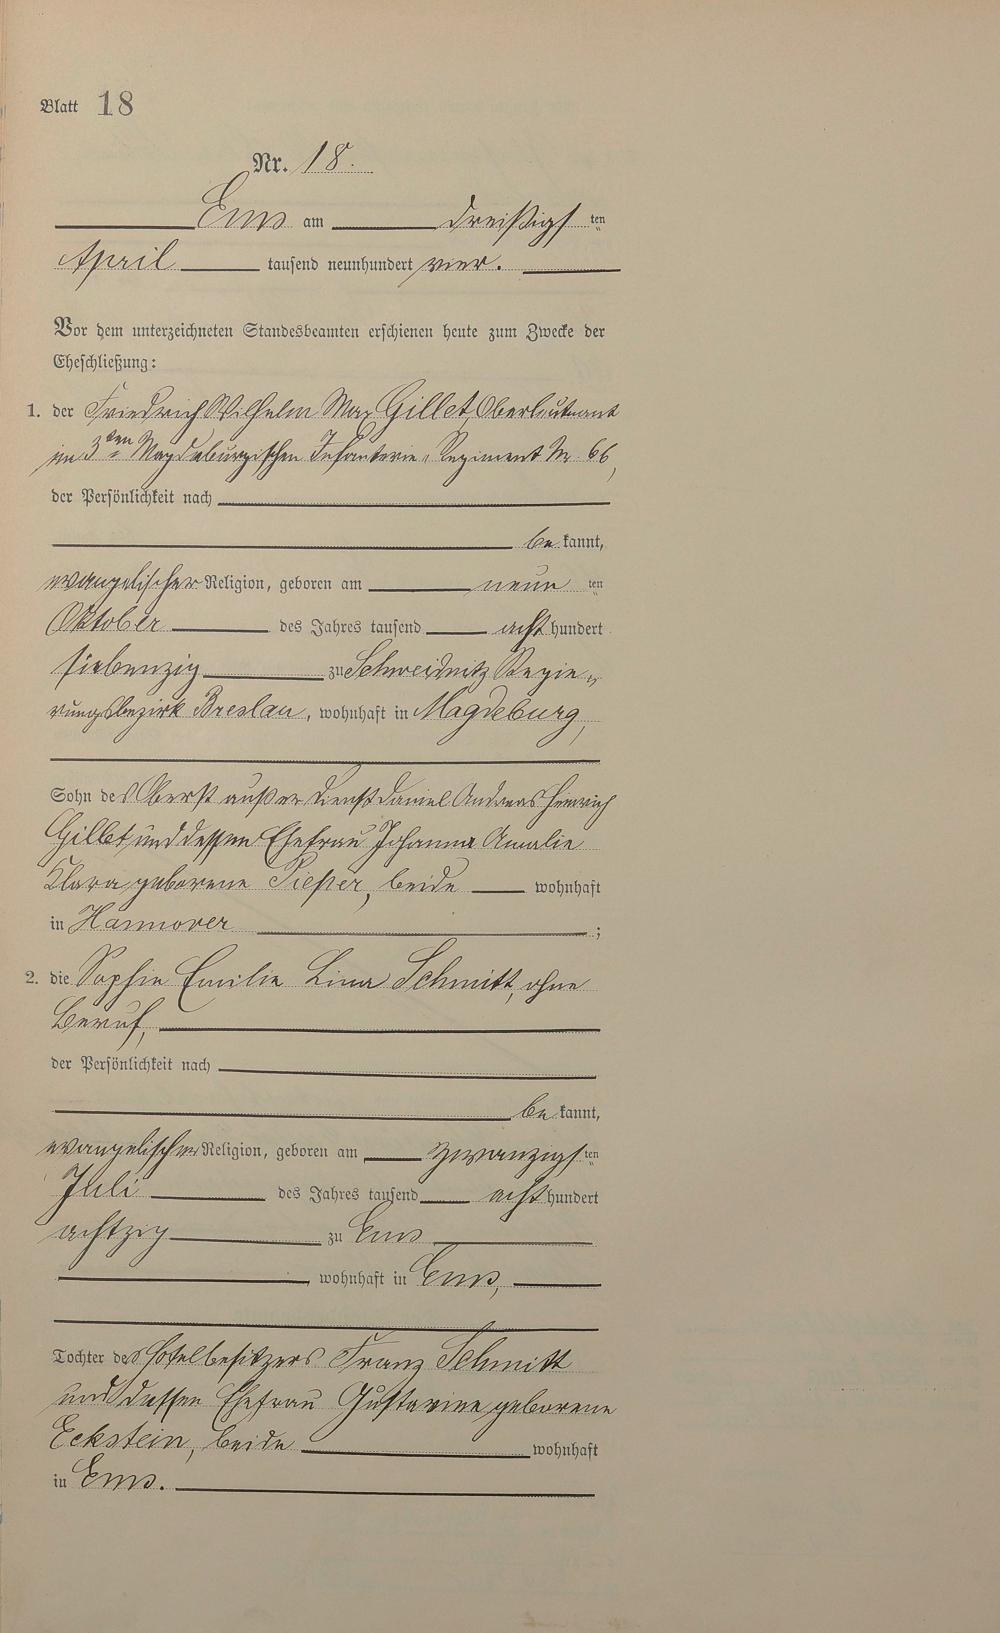 Blatt 18
Nr. 18.
Ems am dreißigsten
April tausend neunhundert vier.
Vor dem unterzeichneten Standesbeamten erschienen heute zum Zwecke der
Eheschließung:
1. der Friedrich Wilhelm Max Gillet, Oberleutnant
im 3ten Magdeburgischen Infanterie-Regiment Nr. 66,
der Persönlichkeit nach
bekannt,
evangelischer Religion, geboren am neunten
Oktober des Jahres tausend achthundert
siebenzig zu Schweidnitz Regie-
rungsbezirk Breslau, wohnhaft in Magdeburg,
Sohn des Oberst außer Dienst Daniel Andreas Heinrich
Gillet und dessen Ehefrau Johanna Amalie
Clara geborene Pieper, beide wohnhaft
in Hannover ;
2. die Sophie Emilie Lina Schmitt, ohne
Beruf,
der Persönlichkeit nach
bekannt,
evangelischer Religion, geboren am zwanzigsten
Juli des Jahres tausend achthundert
achtzig zu Ems
, wohnhaft in Ems,
Tochter des Hotelbesitzers Franz Schmitt
und dessen Ehefrau Gustavine geborene
Eckstein, beide wohnhaft
in Ems.